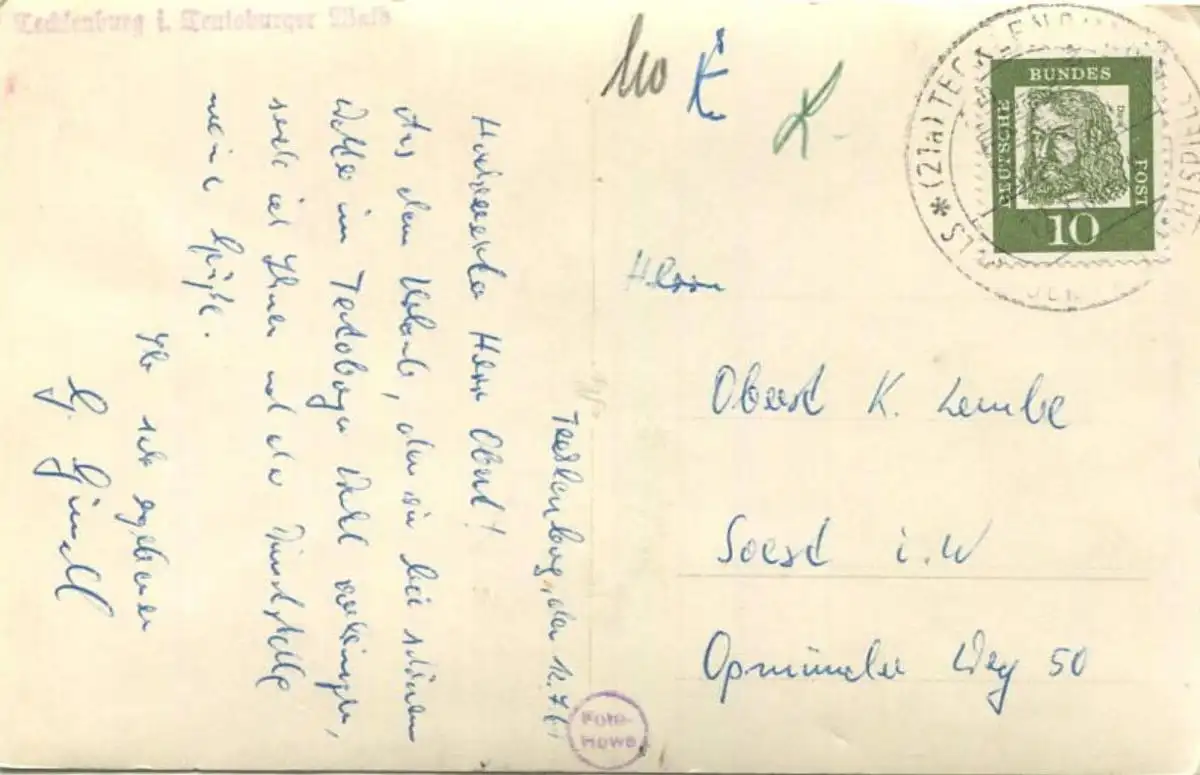 Tecklenburg i. Teutoburger Wald
Tecklenburg, den 12.7.61
Hochverehrter Herr Oberst!
Aus dem Urlaub, den wir bei schönem
Wetter im Teutoburger Wald verbringen,
sende ich Ihnen und der Dienststelle
meine Grüße.
Ihr sehr ergebener
G.
K.
Herrn
Oberst K. Lembe
Soest i. W
Opmünder Weg 50
DEUTSCHE BUNDES POST
10
(21a) TECKLENBURG
Foto-
Howe